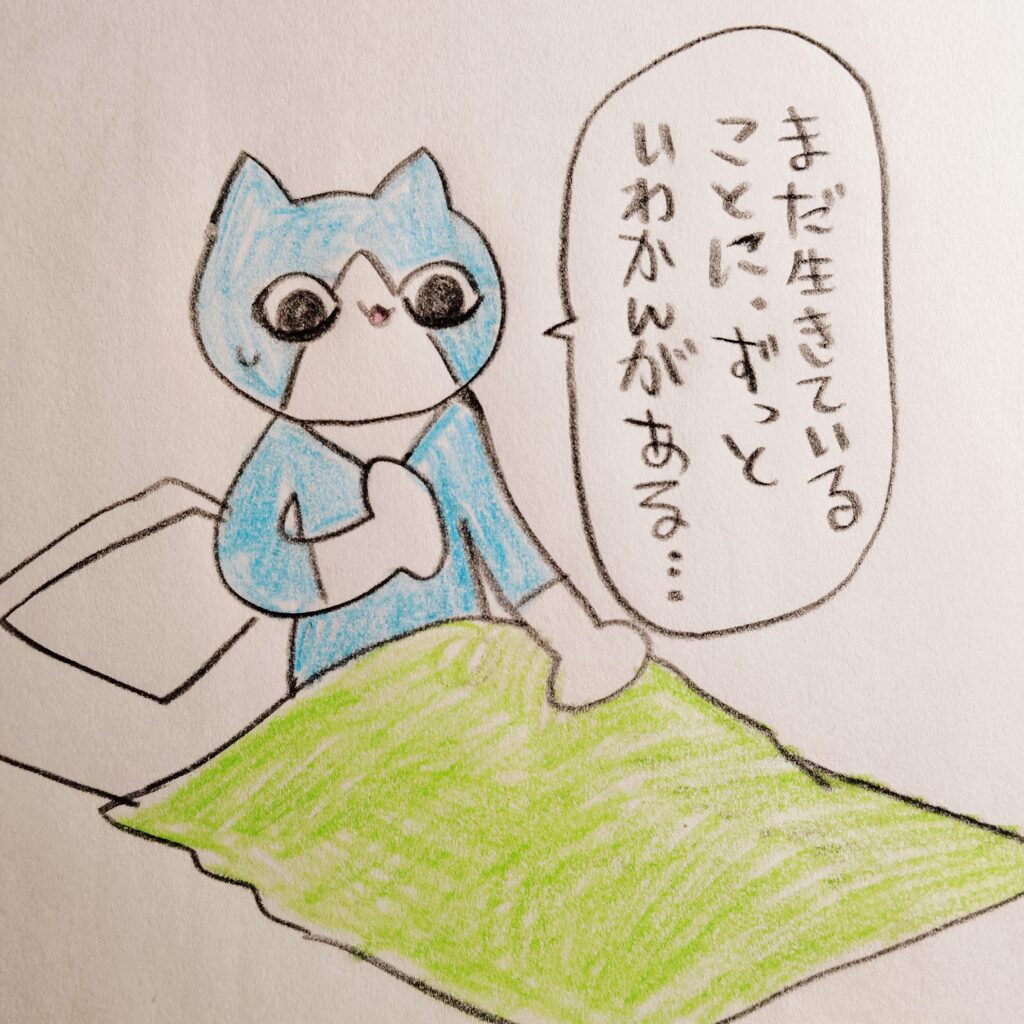 まだ生きている
ことに、ずっと
いわかんがある…